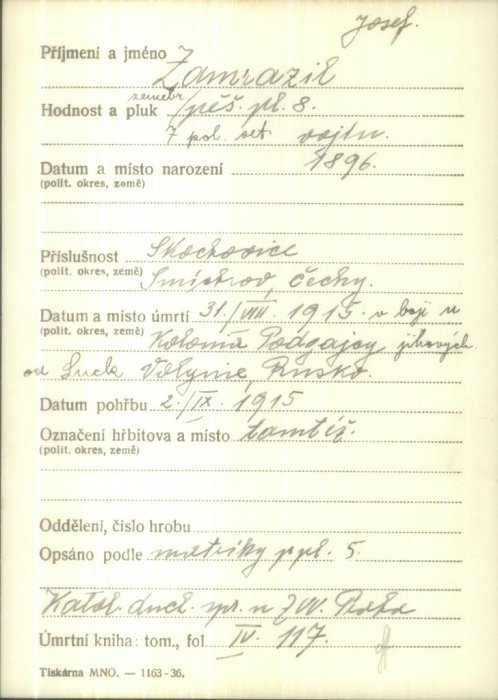 Josef.
Příjmení a jméno Zamrazil
zeměbr.
Hodnost a pluk pěš. pl. 8.
7 pol. set. vojín
Datum a místo narození 1896.
(polit. okres, země)
Příslušnost Skochovice
(polit. okres, země) Smíchov, Čechy.
Datum a místo úmrtí 31./VIII 1915 v boji u
(polit. okres, země) Kolonia Podgajcy jihových.
od Luck Volynie, Rusko.
Datum pohřbu 2./IX. 1915
Označení hřbitova a místo tamtéž.
(polit. okres, země)
Oddělení, číslo hrobu
Opsáno podle matriky p.pl. 5.
Katol. duch. spr. u ZVV. Praha
Úmrtní kniha: tom., fol. IV. 117.
Tiskárna MNO. — 1163-36.